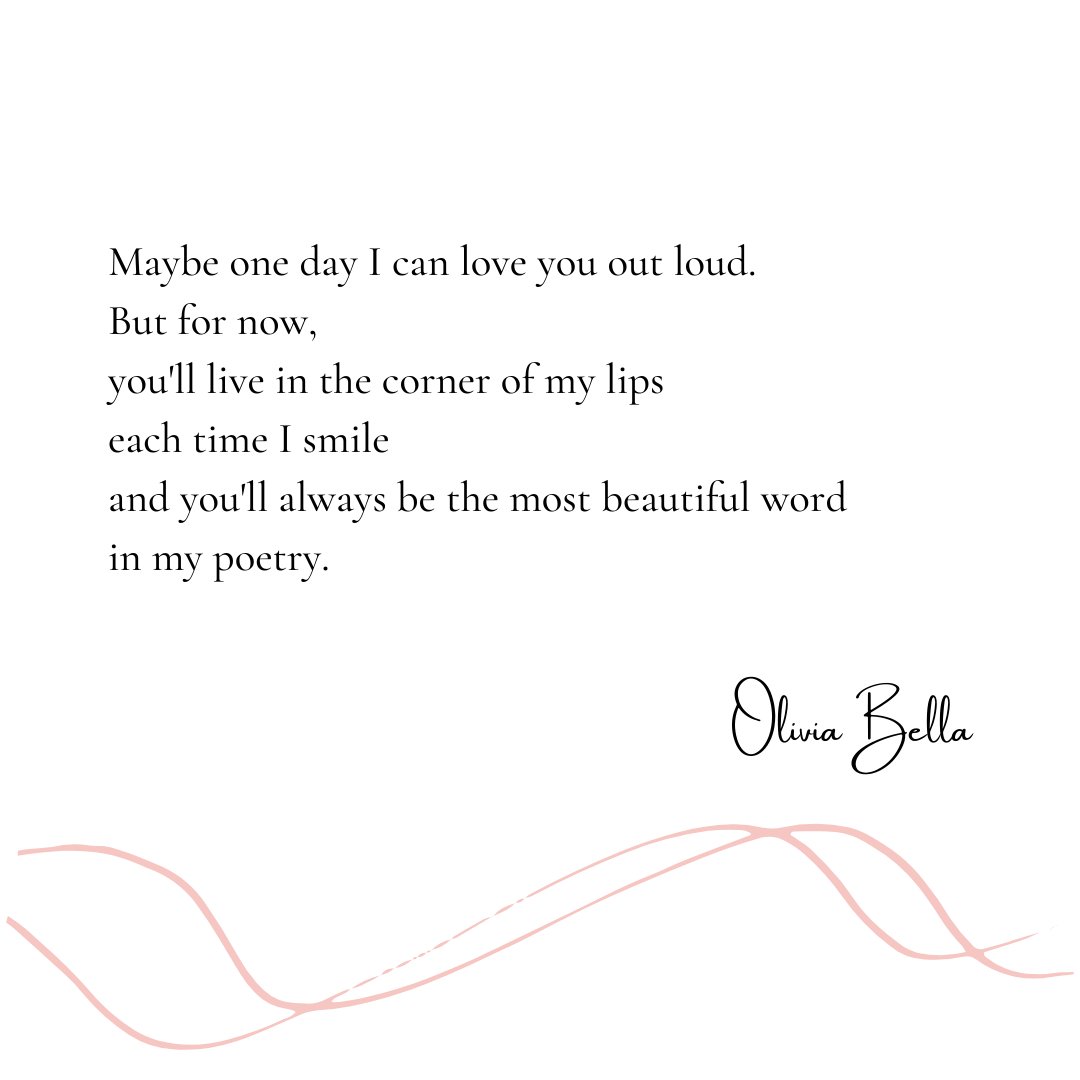 Maybe one day I can love you out loud.
But for now,
you'll live in the corner of my lips
each time I smile
and you'll always be the most beautiful word
in my poetry.
Olivia Bella